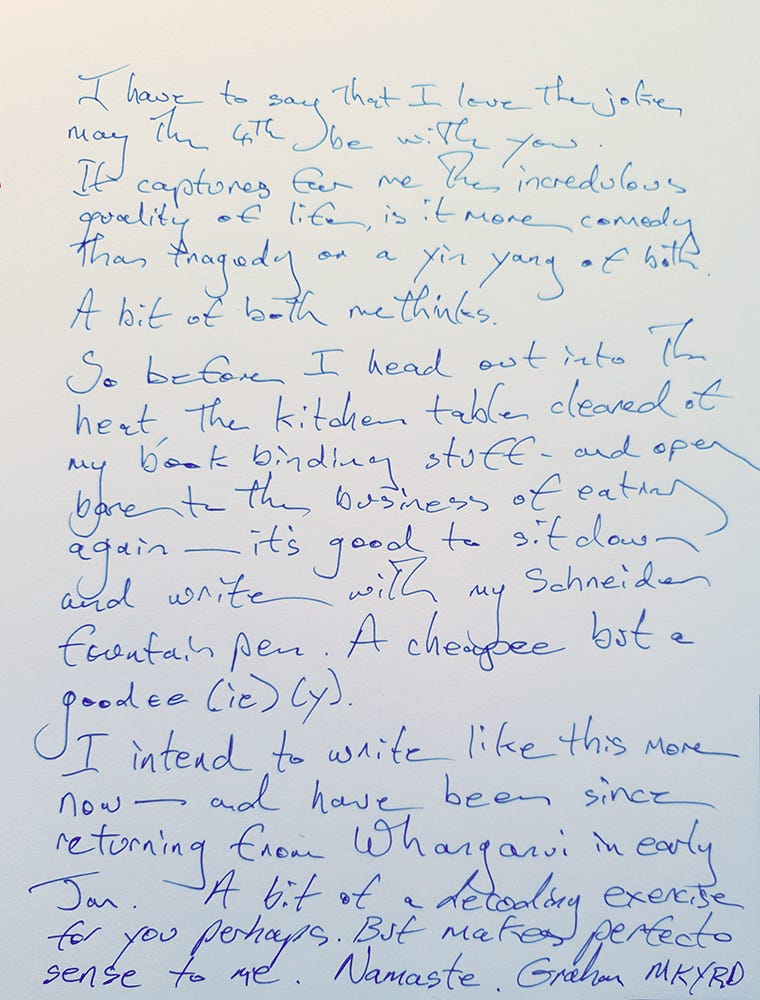 I have to say that I love the joke,
may the 4th be with you.
It captures for me the incredulous
quality of life, is it more comedy
than tragedy or a yin yang of both.
A bit of both methinks.
So before I head out into the
heat, the kitchen table cleared of
my book binding stuff - and open
bare to the business of eating
again — it's good to sit down
and write with my Schneider
fountain pen. A cheapee but a
goodee (ie) (y).
I intend to write like this more
now — and have been since
returning from Whanganui in early
Jan. A bit of a decoding exercise
for you perhaps. But makes perfecto
sense to me. Namaste. Graham MKYRD